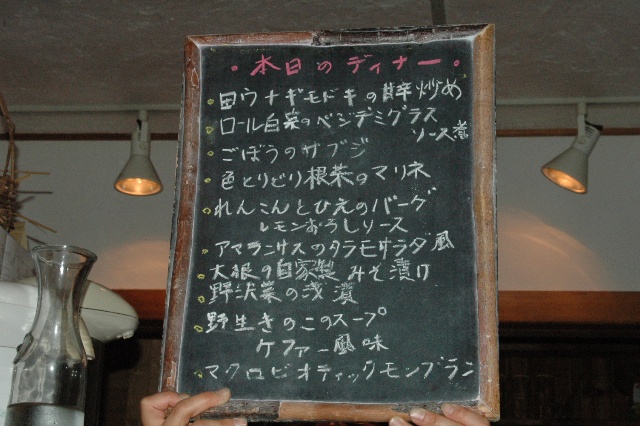 ・本日のディナー・
・田ウナギモドキの甘辛炒め
・ロール白菜のベジデミグラス
ソース煮
・ごぼうのサブジ
・色とりどり根菜のマリネ
・れんこんとひえのバーグ
レモンおろしソース
・アマランサスのタラモサラダ風
・大根の自家製みそ漬け
野沢菜の浅漬
・野生きのこのスープ
ケファー風味
・マクロビオティックモンブラン